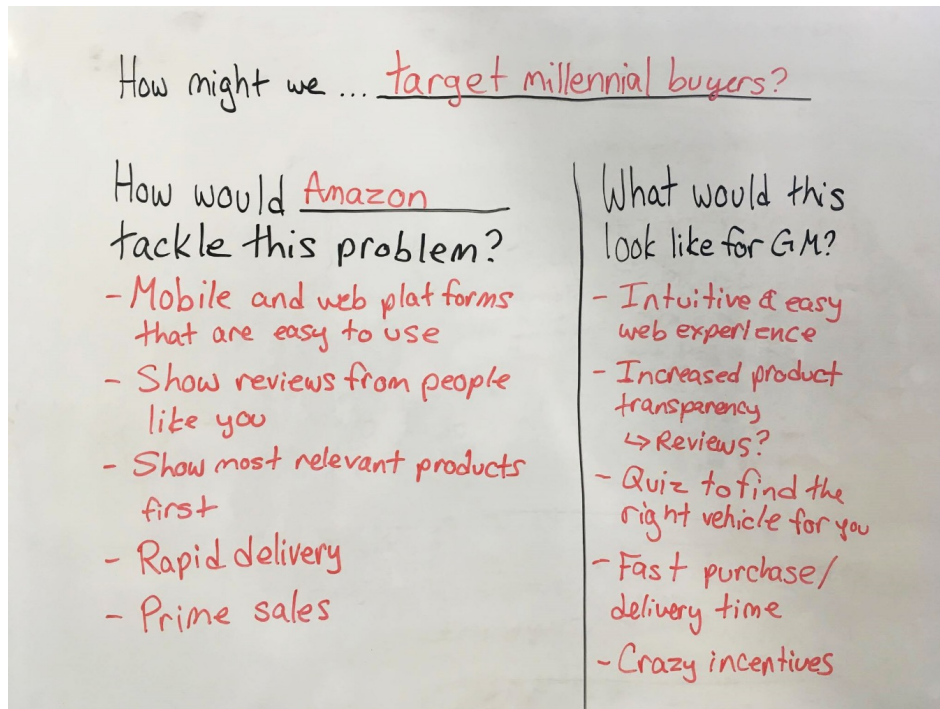 How might we ... target millennial buyers?
How would Amazon
tackle this problem?
- Mobile and web platforms
that are easy to use
- Show reviews from people
like you
- Show most relevant products
first
- Rapid delivery
- Prime sales
What would this
look like for GM?
- Intuitive & easy
web experience
- Increased product
transparency
↳ Reviews?
- Quiz to find the
right vehicle for you
- Fast purchase/
delivery time
- Crazy incentives